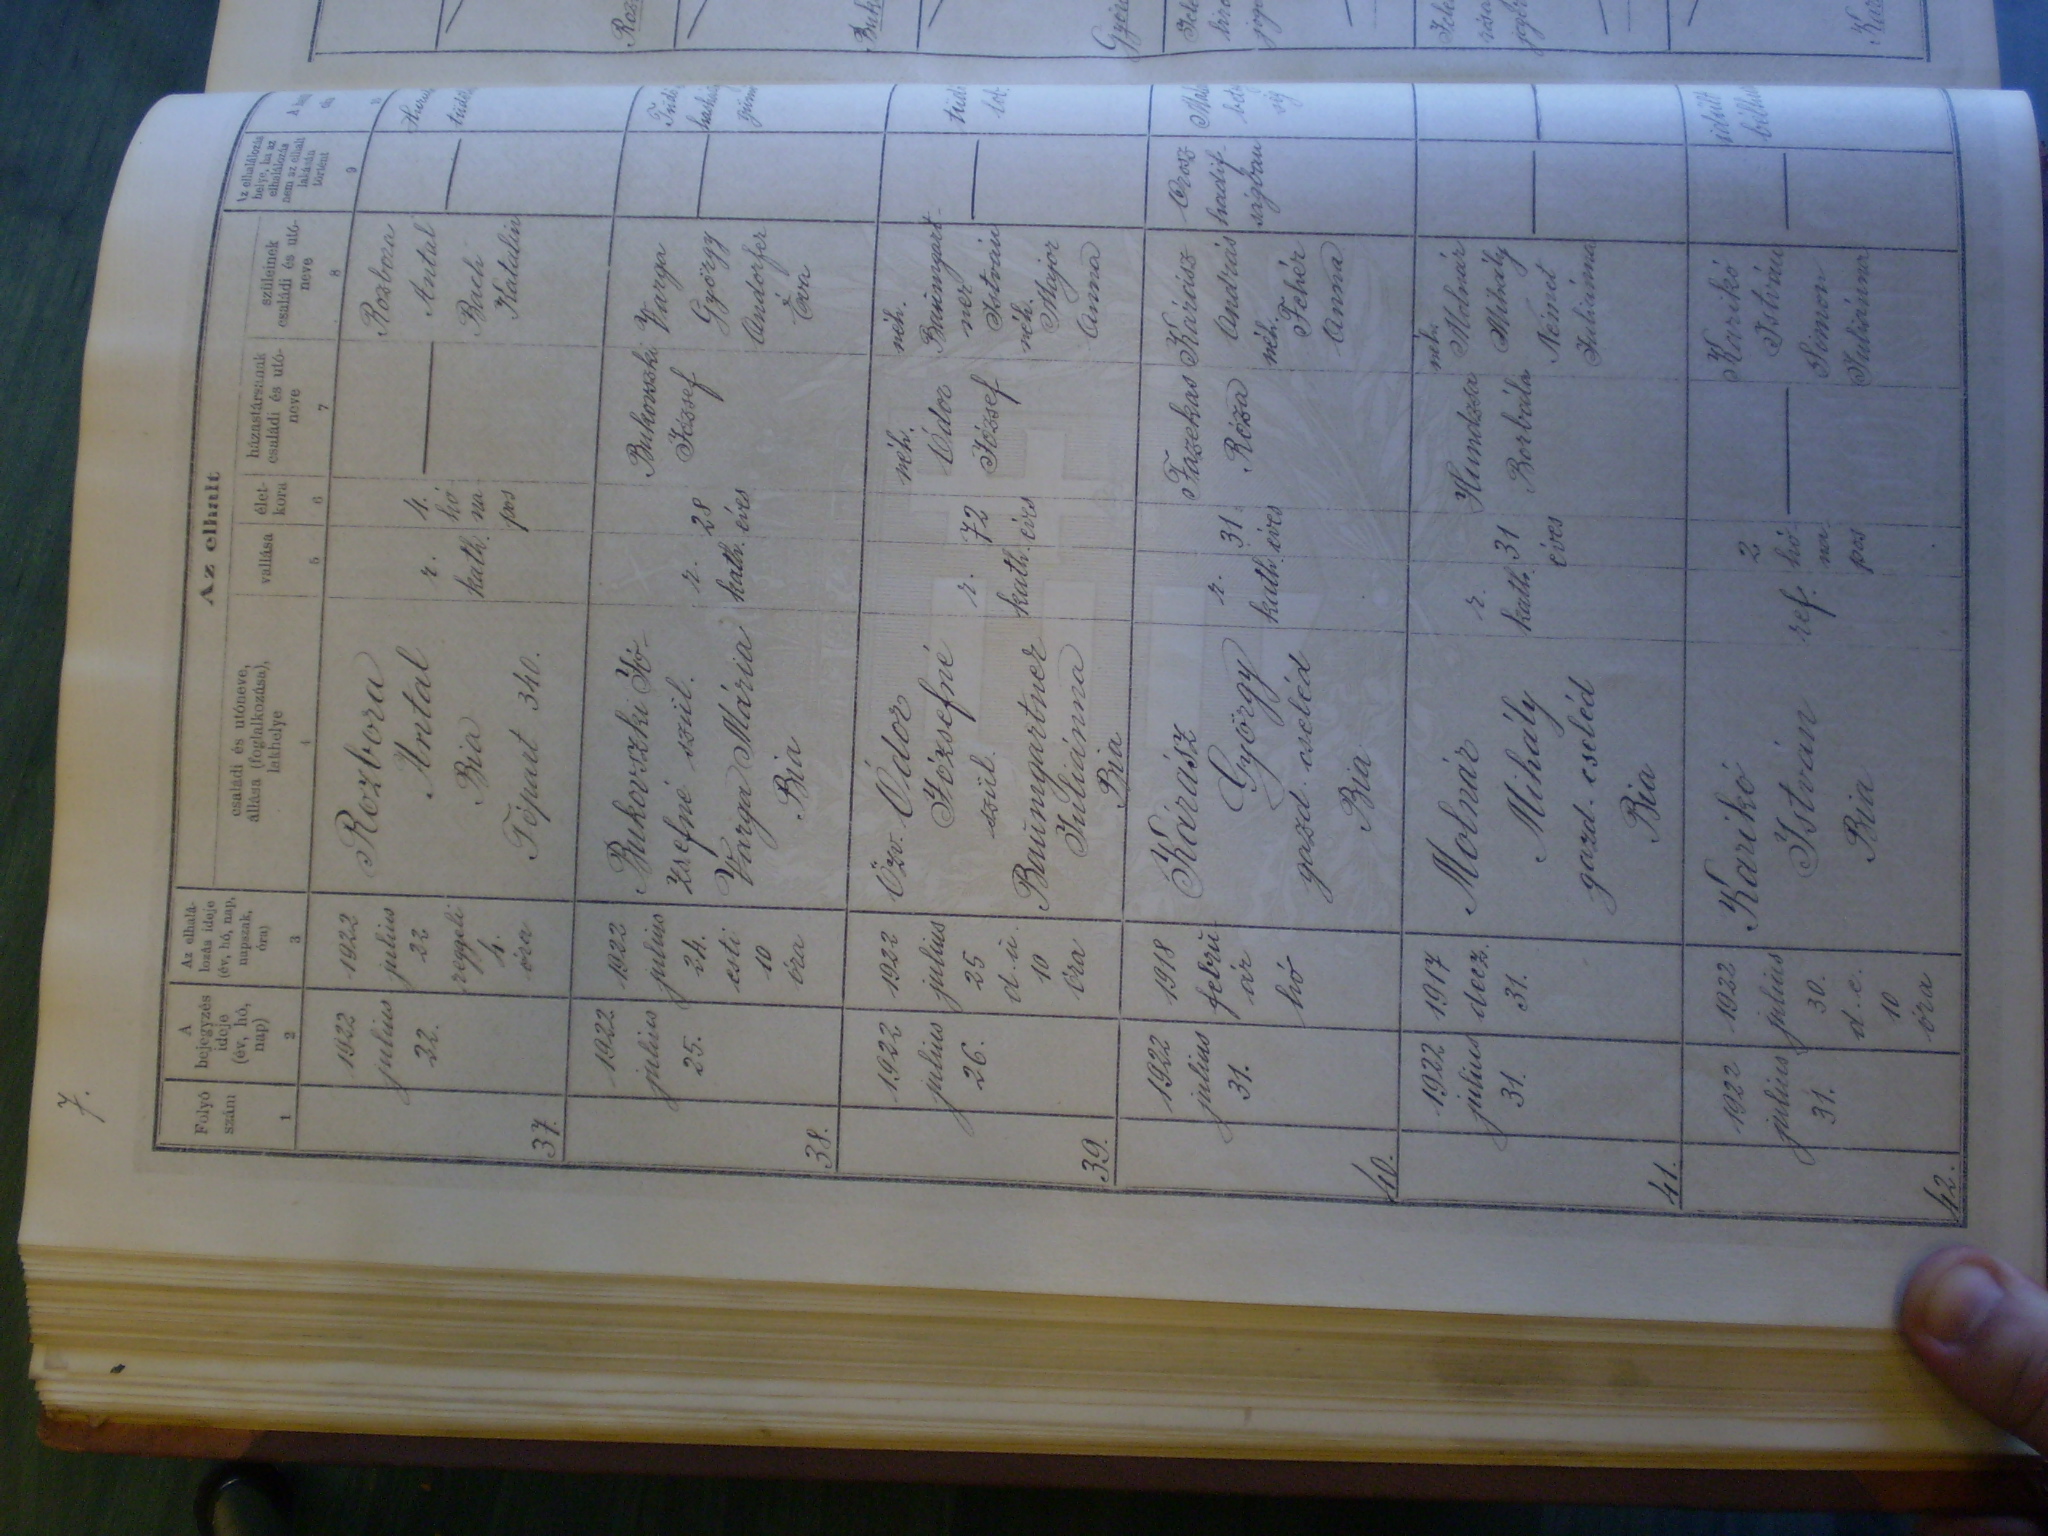 7.
Az elhult
Folyó
szám
A
bejegyzés
ideje
(év, hó,
nap)
Az elhalá-
lozás ideje
(év, hó, nap,
napszak,
óra)
családi és utóneve,
állása (foglalkozása),
lakhelye
vallása
élet-
kora
házastársának
családi és utó-
neve
szüleinek
családi és utó-
neve
Az elhalálozás
helye, ha az
elhalálozás
nem az elhalt
lakásán
történt
1
2
3
4
5
6
7
8
9
37.
1922
julius
22.
1922
julius
22
reggeli
4.
óra
Rozbora
Antal
Bia
Tépart 340.
r.
kath.
4.
hó
na
pos
Rosbora
Antal
Bach
Katalin
38.
1922
julius
25.
1922
julius
24.
esti
10
óra
Bukovszki Jó-
zsefné szül.
Varga Mária
Bia
r.
kath.
28
éves
Bukovszki
József
Varga
György
Andorfer
Éva
39.
1922
julius
26.
1922
julius
25
d. u.
10
óra
Özv. Ódor
Józsefné
szül.
Baumgartner
Juliánna
Bia
r.
kath.
72
éves
néh.
Ódor
József
néh.
Baumgart-
ner
István
néh.
Major
Anna
40.
1922
julius
31.
1918
febru
ár
hó
Kárász
György
gazd. cseléd
Bia
r.
kath.
31.
éves
Fazekas
Róza
Kárász
András
néh.
Fehér
Anna
Orosz
hadif-
ságban
41.
1922
julius
31.
1917
decz.
31.
Molnár
Mihály
gazd. cseléd
Bia
r.
kath.
31
éves
Hundzsa
Borbála
néh.
Molnár
Mihály
Német
Juliánna
42.
1922
julius
31.
1922
julius
30.
d. e.
10
óra
Karikó
István
Bia
ref.
2
hó
na
pos
Karikó
István
Simon
Juliánna